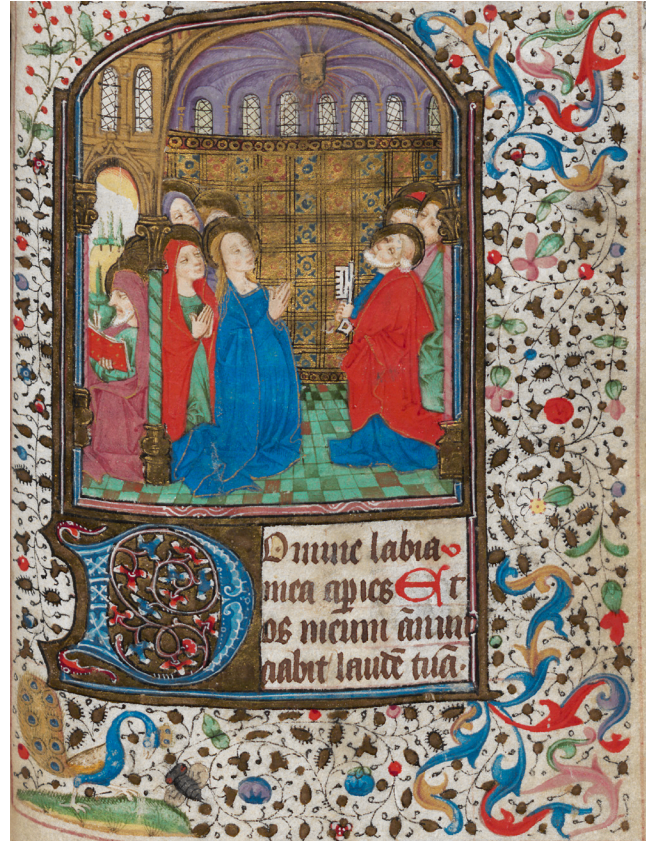 Domine labia
mea aꝑies Et
os meum ānun
ciabit laudē tuā.